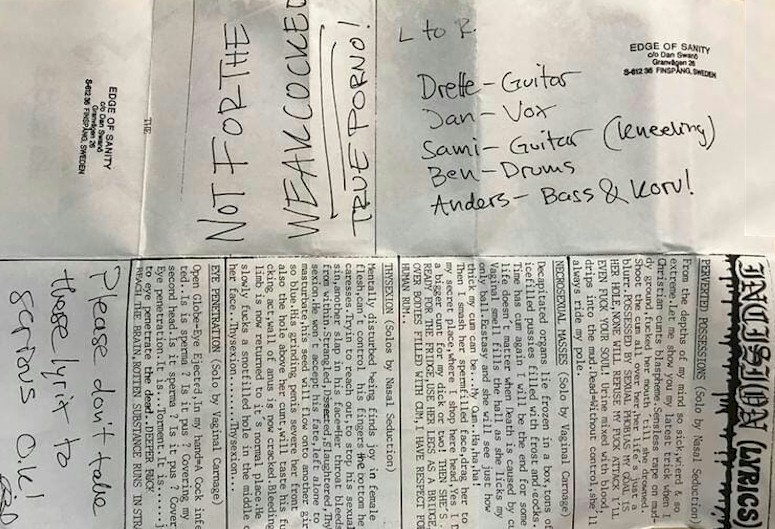 L to R.
EDGE OF SANITY
c/o Dan Swanö
Granvägen 26
S-612 36 FINSPÅNG, SWEDEN
Drette - Guitar
Dan - Vox
Sami - Guitar (kneeling)
Ben - Drums
Anders - Bass & Korv!
NOT FOR THE
WEAKCOCKED
TRUE PORNO!
EDGE OF SANITY
c/o Dan Swanö
Granvägen 26
S-612 36 FINSPÅNG, SWEDEN
THE
(LYRICS)
PERVERTED POSSESSIONS (Solo by Nasal Seduction)
From the depths of my mind so sick, wierd & so
extreme. Let me show you my latest trick when I
Christian whore blaspheme. Sensless rape on mud
dy ground, fucked her mouth til' she drowned
Shoot the cum all over her, her life's just a
blurr. POSSESSED BY SEXUAL
HER HOLE, NO-ONE WILL REFUSE MY FUCK ATTACK I'LL
EVEN FUCK YOUR SOUL! Urine mixed with blood,
drips into the mud. Dead=Without control, she'll
always ride my pole.
NECROSEXUAL MASSES (Solo by Vaginal Carnage)
Decapitated organs lie frozen in a box, tons of
icefilled pussies filled with frost and cocks.
Time has cum again I will be the end for some
life doesn't matter when Death is caused by cu
Vaginal smell fills the hall as she licks my
only ball. Ecstasy and she will see just how
thick my cum can be. In My Cum.. Ha, ha, ha!
Then I smash her spermfilled face, drag her to
my secret place, where I shop her head. Yes I
a bigger cunt for my dick or two! THEN SHE'S
READY FOR THE FRIDGE, USE HER LEGS AS A BRIDGE,
OVER BODIES FILLED WITH CUM, I HAVE RESPECT FOR
HUMAN RUM..
THYSEXION (Solos by Nasal Seduction)
Mentally disturbed being finds joy in female
flesh, can't control his fingers the bottom he
caresses. Tryin to reach out, to stop his sexua
sin, another slap in the face=Her throat bleeds
from within. Strangled, Dissected, Slaughtered, Thy
sexion. He won't accept his fate, left alone to
masturbate, his seed will flow onto another gir
so now this grinding penis severe her front
also the hole above her cunt, will taste his fu
cking act, wall of anus is now cracked. Bleeding
limb is now returned to it's normal place. He
slowly fucks a snotfilled hole in the middle o
her face.. Thysexion......Thysexion....
EYE PENETRATION (Solo by Vaginal Carnage)
Open Globe-Eye Ejected, in my hand=A Cock infe
ted. Is is sperma ? Is it pus ? Covering my
second head. Is it sperma ? Is it pus ? Cover
Eye penetration. It is...Torment. It is......
to eye penetrate the dead. DEEPER FUCK
REACH THE BRAIN, ROTTEN SUBSTANCE RUNS IN STR
Please don't take
those lyrix to
serious O.k!